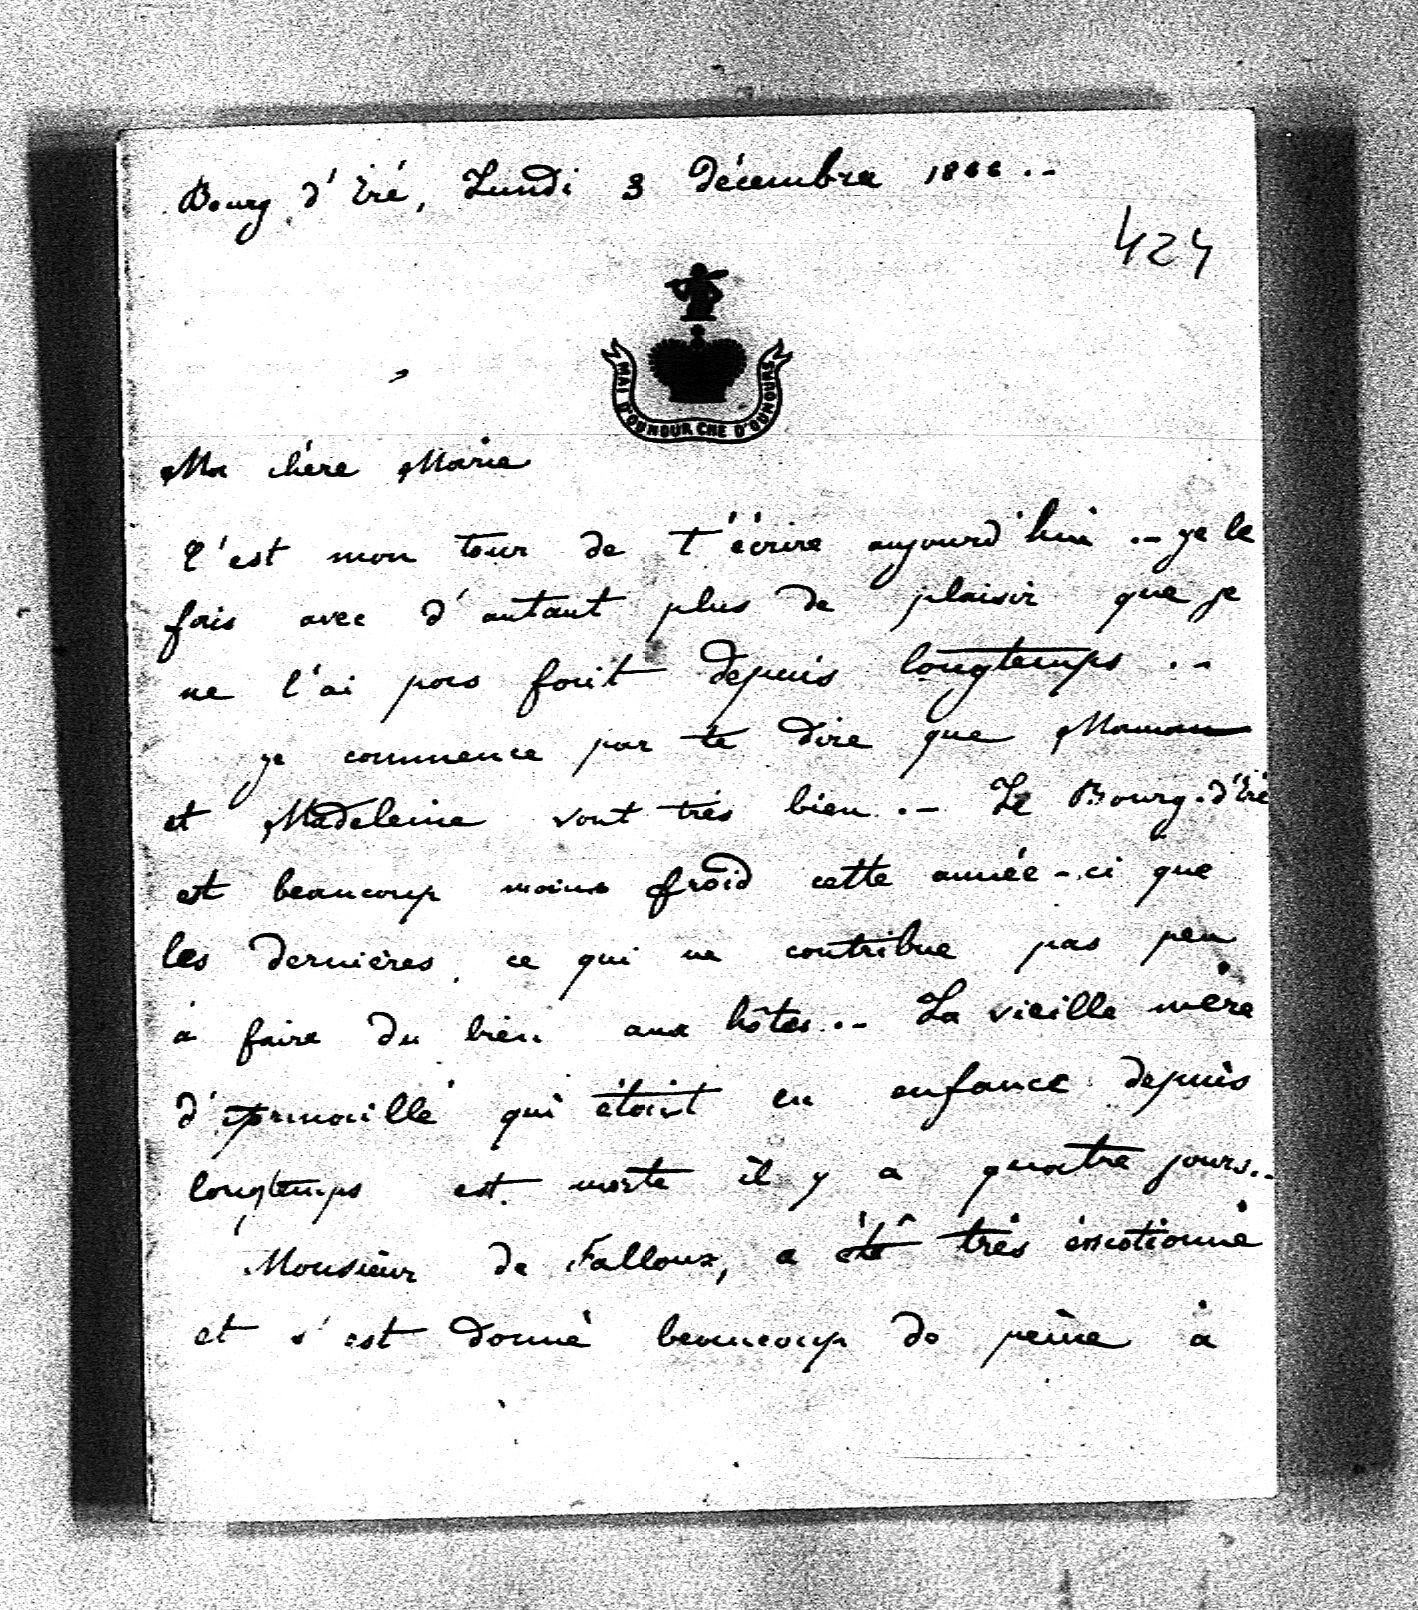 Bourg d'Iré, Lundi 3 décembre 1866 . -
424
MAI D'OUNOUR CHE D'OUNOURS
Ma chère Marie
C'est mon tour de t'écrire aujourd'hui . - je le
fais avec d'autant plus de plaisir que je
ne l'ai pas fait depuis longtemps . -
je commence par te dire que Maman
et Madeleine vont très bien . - Le Bourg-d'Iré
est beaucoup moins froid cette année-ci que
les dernières, ce qui ne contribue pas peu
à faire du bien aux hôtes . - La vieille mère
qui étoit en enfance depuis
longtemps est morte il y a quatre jours . -
Monsieur de Falloux, a été très émotionné
et s'est donné beaucoup de peine à